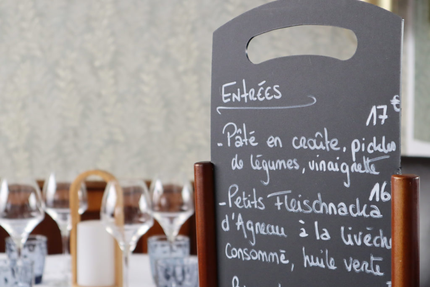 Entrées
17 €
- Pâté en croûte, pickles
de légumes, vinaigrette
16
- Petits Fleischnacka
d'Agneau à la livèche
consommé, huile verte